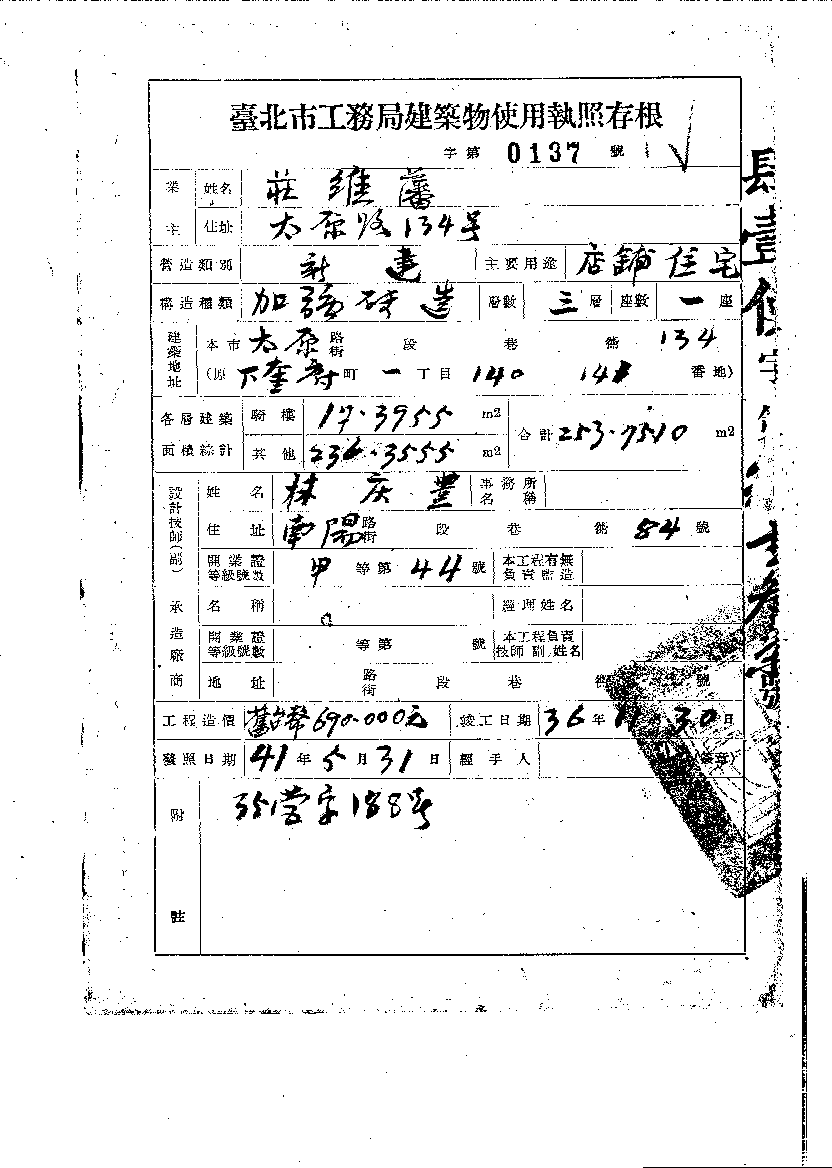 臺北市工務局建築物使用執照存根
字第 0137 號
業主 姓名 莊維藩
住址 太原路134号
營造類別 新建 主要用途 店鋪住宅
構造種類 加強磚造 層數 三層 座數 一座
建築地址 本市 太原 路街 段 巷 衖 134
(原 下奎府 町 一 丁目 140 141 番地)
各層建築面積綜計 騎樓 17.3955 m2 合計 253.7510 m2
其他 236.3555 m2
設計技師(副) 姓名 林庆豐 事務所名稱
住址 南陽 路街 段 巷 衖 84 號
開業證等級號數 甲 等第 44 號 本工程有無負責監造
承造廠商 名稱 經理姓名
開業證等級號數 等第 號 本工程負責技師(副)姓名
地址 路街 段 巷 衖 號
工程造價 舊台幣690.000元 竣工日期 36年11月30日
發照日期 41年5月31日 經手人 (簽章)
附註
營字188号